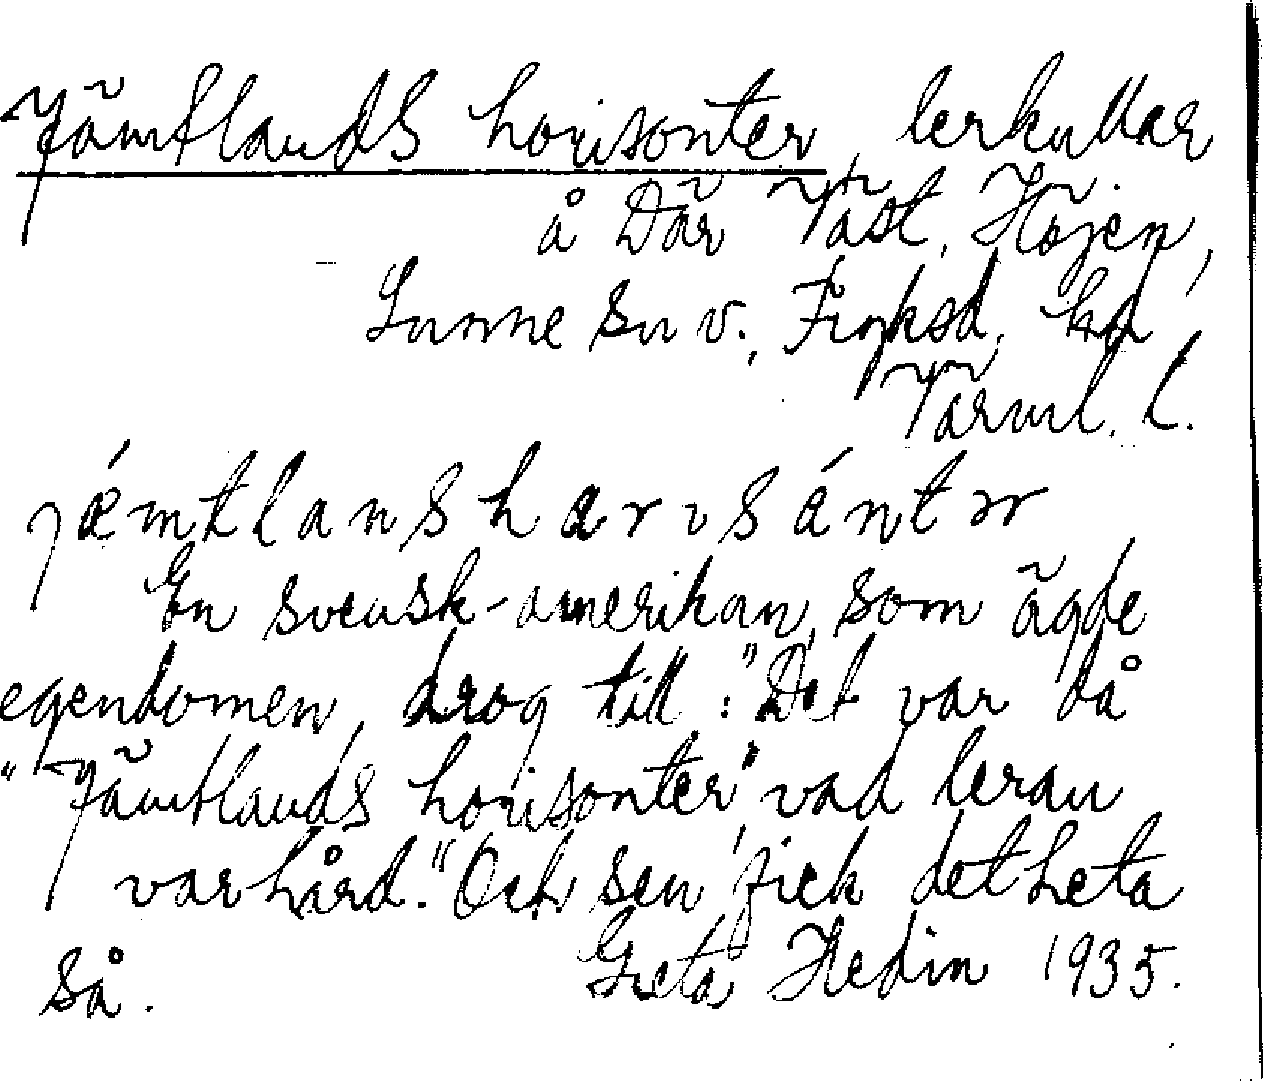 Jämtlands horisonter, lerkullar
å Där Väst, Höjen,
Sunne sn v., Fryksd. hd
Värml. l.
jǽmtlanshorɩsántər
En svensk-amerikan, som ägde
egendomen, drog till: "Det var då
"Jämtlands horisonter", vad leran
var hård." Och sen fick det heta
så. Greta Hedin 1935.